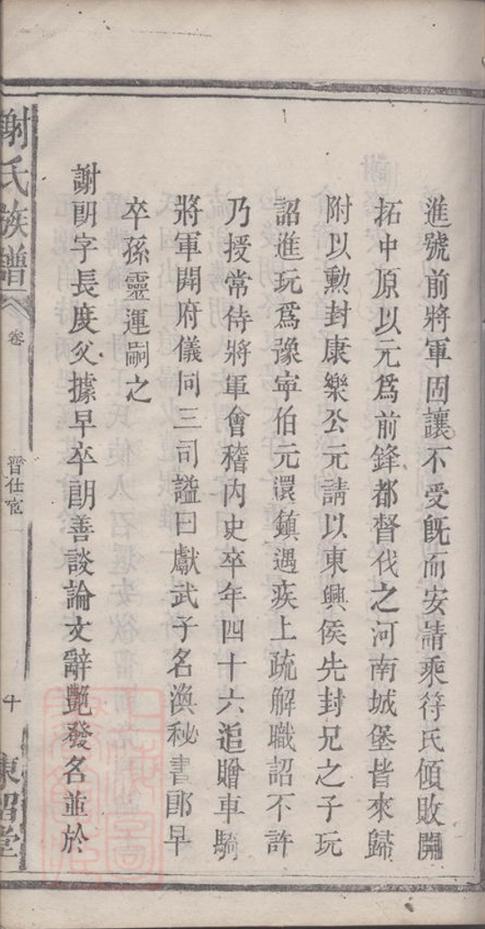 進號前將軍固讓不受既而安請乘苻氏傾敗開
拓中原以元爲前鋒都督伐之河南城堡皆來歸
附以勲封康樂公元請以東興侯先封兄之子玩
詔進玩爲豫寜伯元還鎮遇疾上疏解職詔不許
乃授常侍將軍會稽内史卒年四十六追贈車騎
將軍開府儀同三司謚曰獻武子名渙秘書郎早
卒孫靈運嗣之
謝朗字長度父據早卒朗善談論文辭艷發名並於
謝氏族譜
卷
晉仕宦
十
東
堂